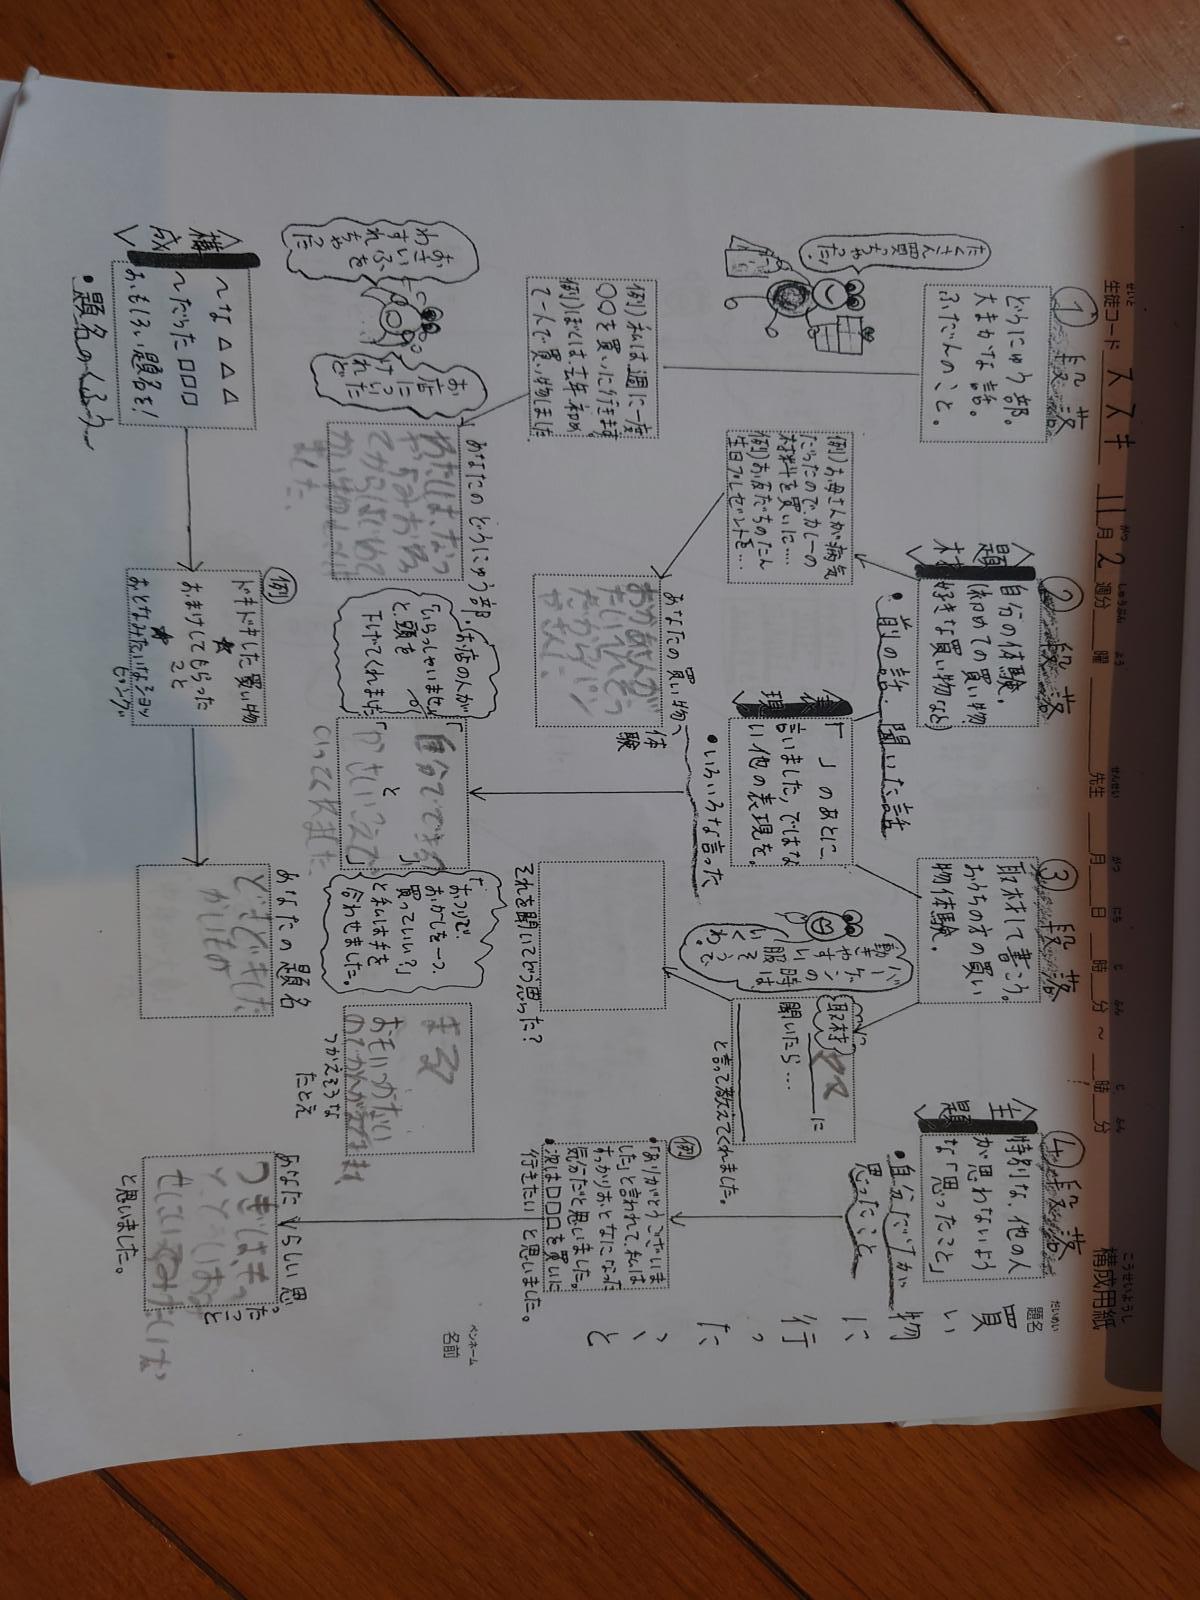 せいと
生徒コード ススキ 11月2週分 曜 先生 月 日 時 分 ～ 時 分
こうせいようし
構成用紙
だいめい
題名
買い物に行ったこと
ペンネーム
名前
① 段落
どうにゅう部。
大まかな話。
ふだんのこと。
たくさん買っちゃった。
例）私は週に一度
〇〇を買いに行きます
例）ぼくは、去年、初め
て一人で買い物しました
おさいふを
わすれちゃった
お店に
けっと
あなたのどうにゅう部。
わたしは、
〈構成〉
～な△△△
～だった□□□
おもしろい題名を！
・題名のくふう
② 段落
〈題材〉
自分の体験。
（初めての買い物
好きな買い物など）
・前の話、聞いた話
例）お母さんが病気
だったので、カレーの
材料を買いに…
例）お友だちのたん
生日プレゼントを…
あなたの買い物体験
おかあさんが
〈表現〉
「　」のあとに、
言いました、ではな
い他の表現を。
・いろいろな言った
お店の人が
「いらっしゃいませ」
と頭を
下げてくれました
「自分でできる」
と
「おつりで、
おかしを一つ、
買っていい？」
と私は手を
合わせました。
例
ドキドキした買い物
★
おまけしてもらった
こと
★
おとなみたいなショッ
ピング
あなたの題名
どきどきした
かいもの
③ 段落
取材して書こう。
おうちの方の買い
物体験。
バーゲン
の時は
動きやすい服
でいくそうよ。
取材
ママに
聞いたら…
と言って教えてくれました。
それを聞いてどう思った？
まる
おもいつかない
のでかんがえてます
つかえそうな
たとえ
④ 段落
〈主題〉
特別な、他の人
が思わないよう
な「思ったこと」
・自分だけが
思ったこと
例
・「ありがとうございま
した」と言われて、私は
すっかりおとなになった
気分だと思いました。
・次は□□□を買いに
行きたい」と思いました。
あなたらしい思
ったこと
つぎは、もっ
と思いました。